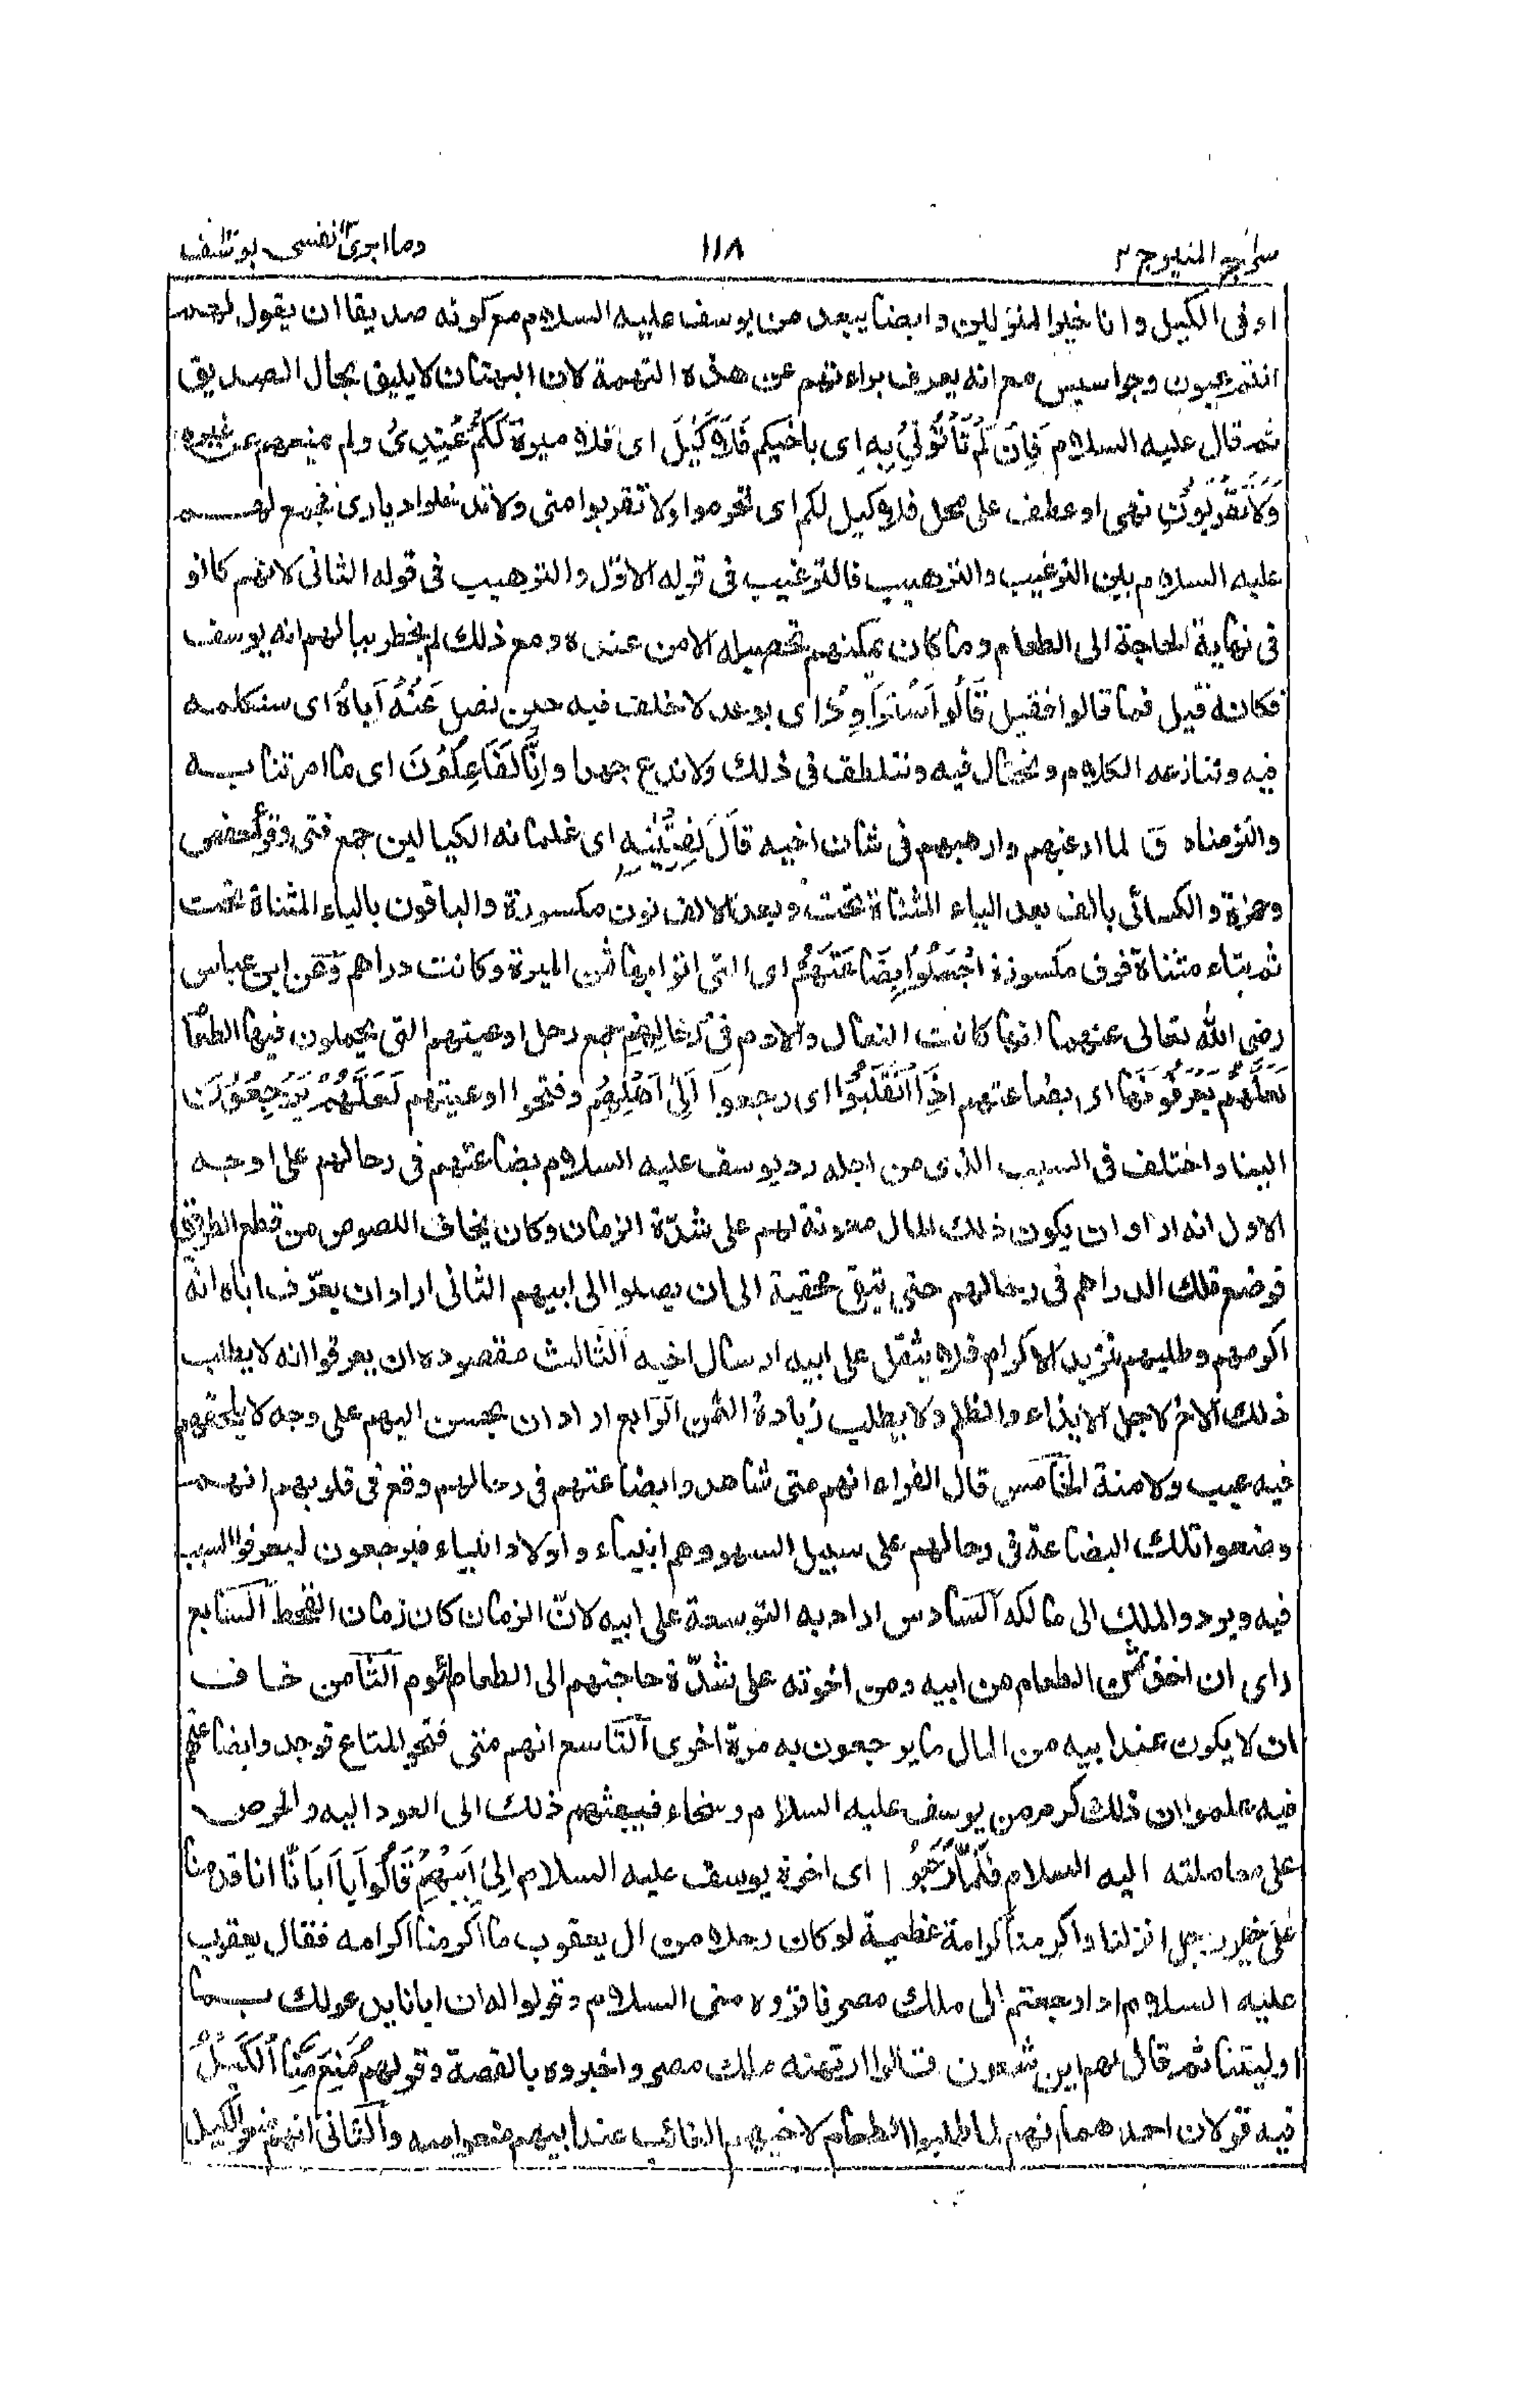 سراج المنير ج ٢ ١١٨ وما ابرئ نفسى يوسف
اوفى الكيل وانا خير المنزلين وايضا يبعد من يوسف عليه السلام مع كونه صديقا ان يقول لهم
انتم عيون وجواسيس مع انه يعرف براءتهم عن هذه التهمة لان البهتان لا يليق بحال الصديق
ثم قال عليه السلام فَاِنْ لَّمْ تَاْتُوْنِيْ بِهٖ اى باخيكم فَلَا كَيْلَ اى فلا ميرة لَكُمْ عِنْدِيْ ولم يمنعهم من غيره
وَلَا تَقْرَبُوْنِ نهى او عطف على محل فلا كيل لكم اى تحرموا ولا تقربوا منى ولا تدخلوا ديارى فجمع لهم
عليه السلام بين الترغيب والترهيب فالترغيب فى قوله الاوّل والترهيب فى قوله الثانى لانهم كانوا
فى نهاية الحاجة الى الطعام وما كان يمكنهم تحصيله الا من عنده ومع ذلك لم يخطر ببالهم انه يوسف
فكانه قيل فما قالوا فقيل قَالُوْا سَنُرَاوِدُ اى بوعد لا خلف فيه حين نصل عَنْهُ اَبَاهُ اى سنكلمه
فيه وننازعه الكلام ونحتال فيه ونتلطف فى ذلك ولا ندع جهدا وَاِنَّا لَفَاعِلُوْنَ اى ما امرتنا به
والتزمناه ق لما ارغبهم وارهبهم فى شان اخيه قَالَ لِفِتْيٰنِهِ اى غلمانه الكيالين جمع فتى وقرأ حفص
وحمزة والكسائى بالف بعد الياء المثناة تحت وبعد الالف نون مكسورة والباقون بالياء المثناة تحت
ثم بتاء مثناة فوق مكسورة اجْعَلُوْا بِضَاعَتَهُمْ اى التى اتوا بها ثمن الميرة وكانت دراهم وعن ابن عباس
رضى الله تعالى عنهما انها كانت النعال والادم فِيْ رِحَالِهِمْ جمع رحل اوعيتهم التى يحملون فيها الطعام
لَعَلَّهُمْ يَعْرِفُوْنَهَا اى بضاعتهم اِذَا انْقَلَبُوْا اى رجعوا اِلٰى اَهْلِهِمْ وفتحوا اوعيتهم لَعَلَّهُمْ يَرْجِعُوْنَ
الينا واختلف فى السبب الذى من اجله رد يوسف عليه السلام بضاعتهم فى رحالهم على اوجه
الاول انه اراد ان يكون ذلك المال معونة لهم على شدّة الزمان وكان يخاف اللصوص من قطع الطريق
فوضع تلك الدراهم فى رحالهم حتى تبقى مخفية الى ان يصلوا الى ابيهم الثانى اراد ان يعرّف اباه انه
اكرمهم وطلبهم لمزيد الاكرام فلا يثقل على ابيه ارسال اخيه الثالث مقصوده ان يعرفوا انه لا يطلب
ذلك الاخ لاجل الايذاء والظلم ولا يطلب زيادة الثمن الرابع اراد ان يحسن اليهم على وجه لا يلحقهم
فيه عيب ولا منة الخامس قال الفراء انهم متى شاهدوا بضاعتهم فى رحالهم وقع فى قلوبهم انهم
وضعوا تلك البضاعة فى رحالهم على سبيل السهو وهم انبياء واولاد انبياء فيرجعون ليعرفوا السبب
فيه ويردوا الملك الى مالكه السادس اراد به التوسعة على ابيه لانّ الزمان كان زمان القحط السابع
راى ان اخذ ثمن الطعام من ابيه ومن اخوته على شدّة حاجتهم الى الطعام لؤم الثامن خاف
ان لا يكون عند ابيه من المال ما يرجعون به مرة اخرى التاسع انهم متى فتحوا المتاع فوجدوا بضاعتهم
فيه علموا ان ذلك كرم من يوسف عليه السلام وسخاء فيبعثهم ذلك الى العود اليه والحرص
على معاملته اليه السلام فَلَمَّا رَجَعُوْا اى اخوة يوسف عليه السلام اِلٰى اَبِيْهِمْ قَالُوْا يَا اَبَانَا انا قدمنا
على خير رجل انزلنا واكرمنا كرامة عظيمة لو كان رجلا من ال يعقوب ما اكرمنا اكرامه فقال يعقوب
عليه السلام اذا رجعتم الى ملك مصر فاقرؤه منى السلام وقولوا له ان ابانا يدعو لك بما
اوليتنا ثم قال لهم اين شمعون قالوا ارتهنه ملك مصر واخبروه بالقصة وقولهم مُنِعَ مِنَّا الْكَيْلُ
فيه قولان احدهما انهم لما طلبوا الطعام لاخيهم الغائب عند ابيهم منعوا منه والثانى انهم منعوا الكيل